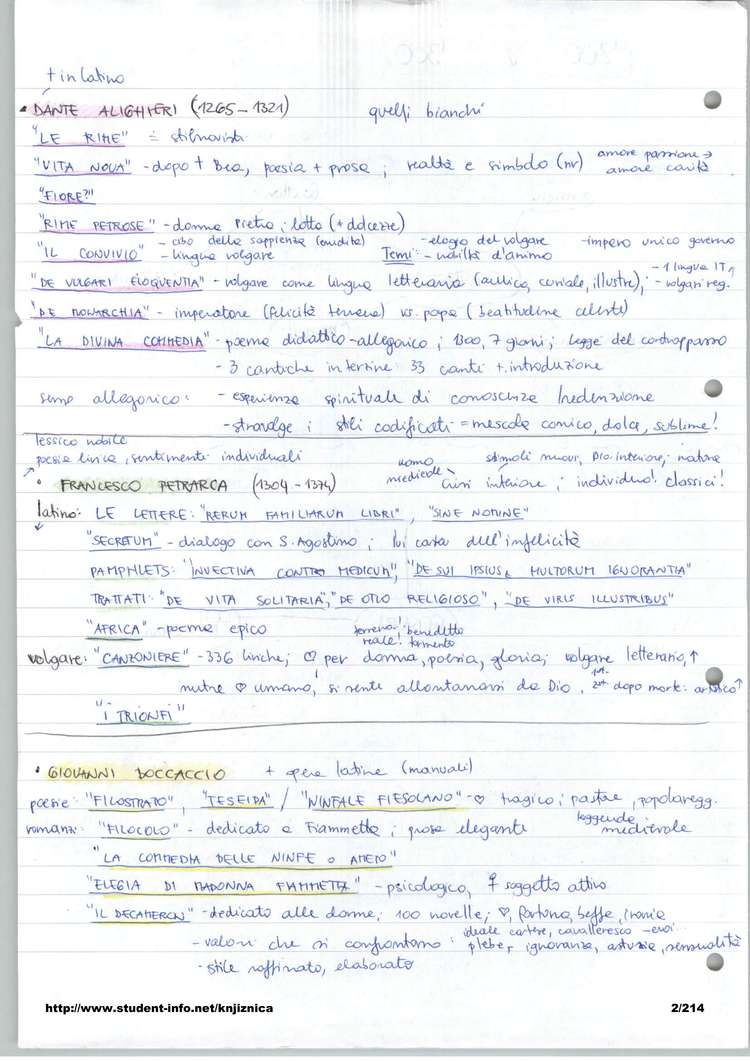 + in latino
• DANTE ALIGHIERI (1265 – 1321) guelfi bianchi
"LE RIME" = stilnovista
"VITA NOVA" - dopo † Bea, poesia + prosa ; realtà e simbolo (nr) amore passione → amore carità
"FIORE?"
"RIME PETROSE" - donna Pietra ; lotta (+ dolcezze)
"IL CONVIVIO" - cibo della sappienza (erudite) - elogio del volgare - impero unico governo
- lingua volgare Temi: - nobiltà d'animo
"DE VULGARI ELOQUENTIA" - volgare come lingua letteraria (aullica, curiale, illustre), - 1 lingua IT, - volgari reg.
"DE MONARCHIA" - imperatore (felicità terrena) vs. papa (beatitudine celeste)
"LA DIVINA COMMEDIA" - poema didattico-allegorico ; 1300, 7 giorni ; legge del contrappasso
- 3 cantiche in terzine 33 canti + introduzione
senso allegorico: - esperienza spirituale di conoscenza / redenzione
- stravolge i stili codificati = mescola comico, dolce, sublime!
lessico nobile
poesia lirica, sentimenti individuali uomo medievale stimoli nuovi, Dio interiore, natura
• FRANCESCO PETRARCA (1304 – 1374) crisi interiore ; individuo! classici!
latino: LE LETTERE: "RERUM FAMILIARUM LIBRI", "SINE NOMINE"
"SECRETUM" - dialogo con S. Agostino ; lui causa dell'infelicità
PAMPHLETS: "INVECTIVA CONTRA MEDICUM", "DE SUI IPSIUS & MULTORUM IGNORANTIA"
TRATTATI: "DE VITA SOLITARIA", "DE OTIO RELIGIOSO", "DE VIRIS ILLUSTRIBUS"
"AFRICA" - poema epico terreno! reale! benedetto tormento
volgare: "CANZONIERE" - 336 liriche; ♡ per donna, poesia, gloria; volgare letterario, ↑
nutre ♡ umano, si sente allontanarsi da Dio, dopo morte:
"I TRIONFI"
• GIOVANNI BOCCACCIO + opere latine (manuali)
poesie: "FILOSTRATO", "TESEIDA" / "NINFALE FIESOLANO" - ♡ tragico ; pastore, popolaregg.
romanzi: "FILOCOLO" - dedicato a Fiammetta ; prosa elegante leggende medievale
"LA COMMEDIA DELLE NINFE O AMETO"
"ELEGIA DI MADONNA FIAMMETTA" - psicologico, ♀ soggetto attivo
"IL DECAMERON" - dedicato alle donne, 100 novelle; ♡, fortuna, beffe, ironia
- valori che si confrontano: ideale cortese, cavalleresco - eroi plebe, ignoranza, astuzia, sensualità
- stile raffinato, elaborato
http://www.student-info.net/knjiznica 2/214